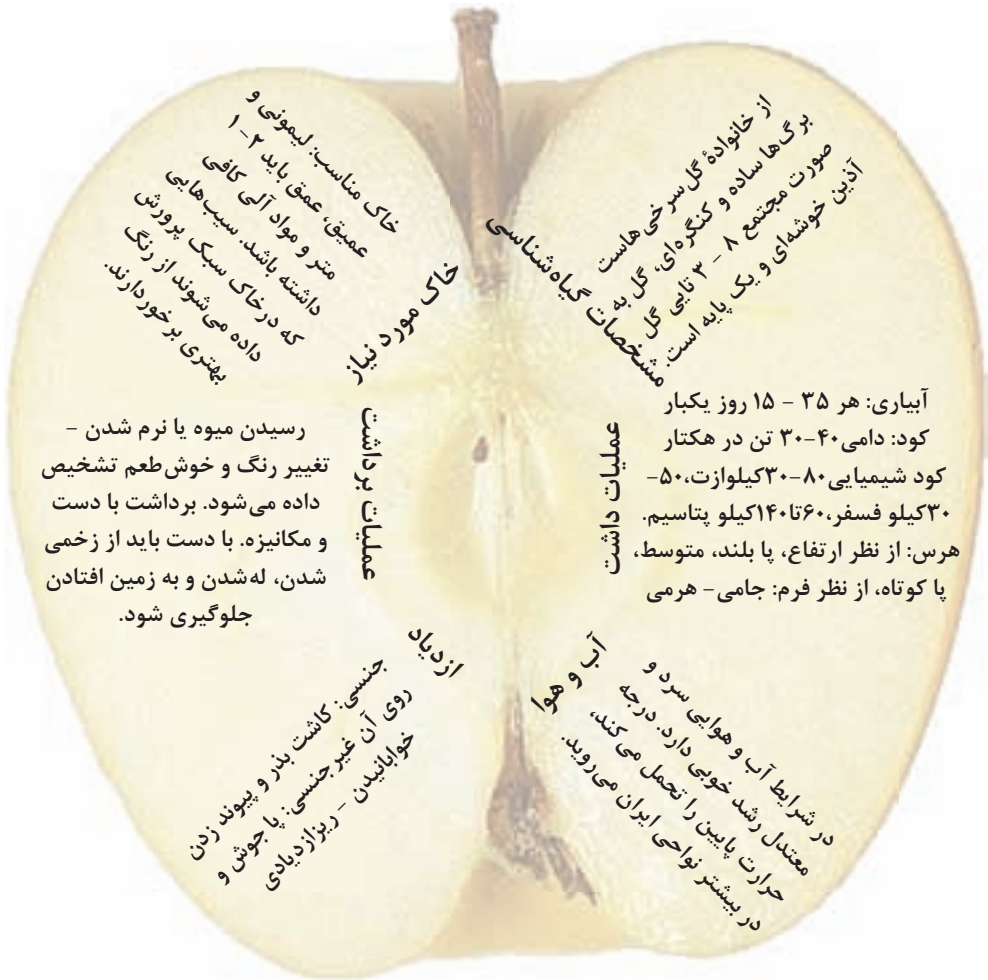 مشخصات گیاه‌شناسی
از خانوادهٔ گل‌سرخی‌هاست
برگ‌ها ساده و کنگره‌ای، گل به
صورت مجتمع ۸ - ۳ تایی گل
آذین خوشه‌ای و یک پایه است.
خاک مورد نیاز
خاک مناسب: لیمونی و
عمیق، عمق باید ۲-۱
متر و مواد آلی کافی
داشته باشد. سیب‌هایی
که درخاک سبک پرورش
داده می‌شوند از رنگ
بهتری برخوردارند.
عملیات داشت
آبیاری: هر ۳۵ - ۱۵ روز یکبار
کود: دامی۴۰-۳۰ تن در هکتار
کود شیمیایی۸۰-۳۰کیلوازت،۵۰-
۳۰کیلو فسفر،۶۰تا۱۴۰کیلو پتاسیم.
هرس: از نظر ارتفاع، پا بلند، متوسط،
پا کوتاه، از نظر فرم: جامی- هرمی
عملیات برداشت
رسیدن میوه یا نرم شدن -
تغییر رنگ و خوش‌طعم تشخیص
داده می‌شود. برداشت با دست
و مکانیزه. با دست باید از زخمی
شدن، له‌شدن و به زمین افتادن
جلوگیری شود.
آب و هوا
در شرایط آب و هوایی سرد و
معتدل رشد خوبی دارد. درجه
حرارت پایین را تحمل می‌کند،
در بیشتر نواحی ایران می‌روید.
ازدیاد
جنسی: کاشت بذر و پیوند زدن
روی آن غیرجنسی: پا جوش و
خوابانیدن - ریزازدیادی